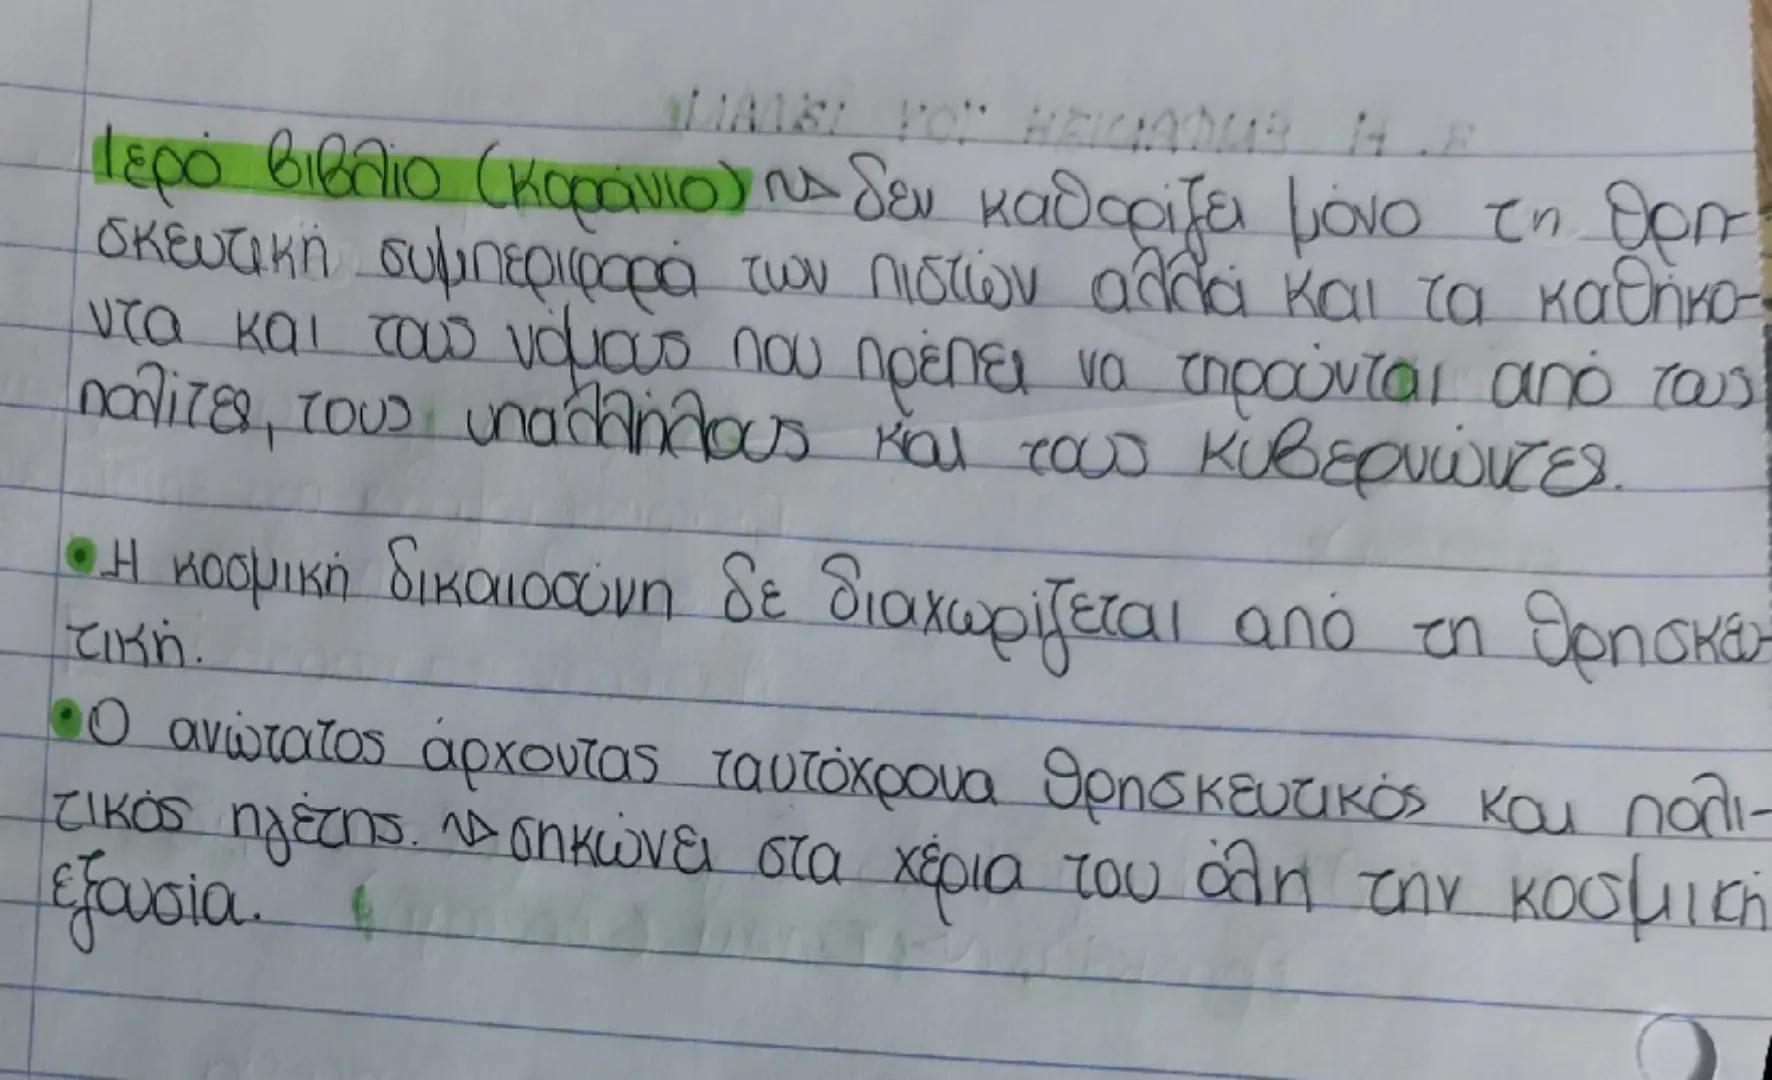 Ιερό βιβλίο (Κοράνιο) ~> δεν καθορίζει μόνο τη θρη-
σκευτική συμπεριφορά των πιστών αλλά και τα καθήκο-
ντα και τους νόμους που πρέπει να τηρούνται από τους
πολίτες, τους υπαλλήλους και τους κυβερνώντες.
• Η κοσμική δικαιοσύνη δε διαχωρίζεται από τη θρησκευ-
τική.
• Ο ανώτατος άρχοντας ταυτόχρονα θρησκευτικός και πολι-
τικός ηγέτης. ~> σηκώνει στα χέρια του όλη την κοσμική
εξουσία.